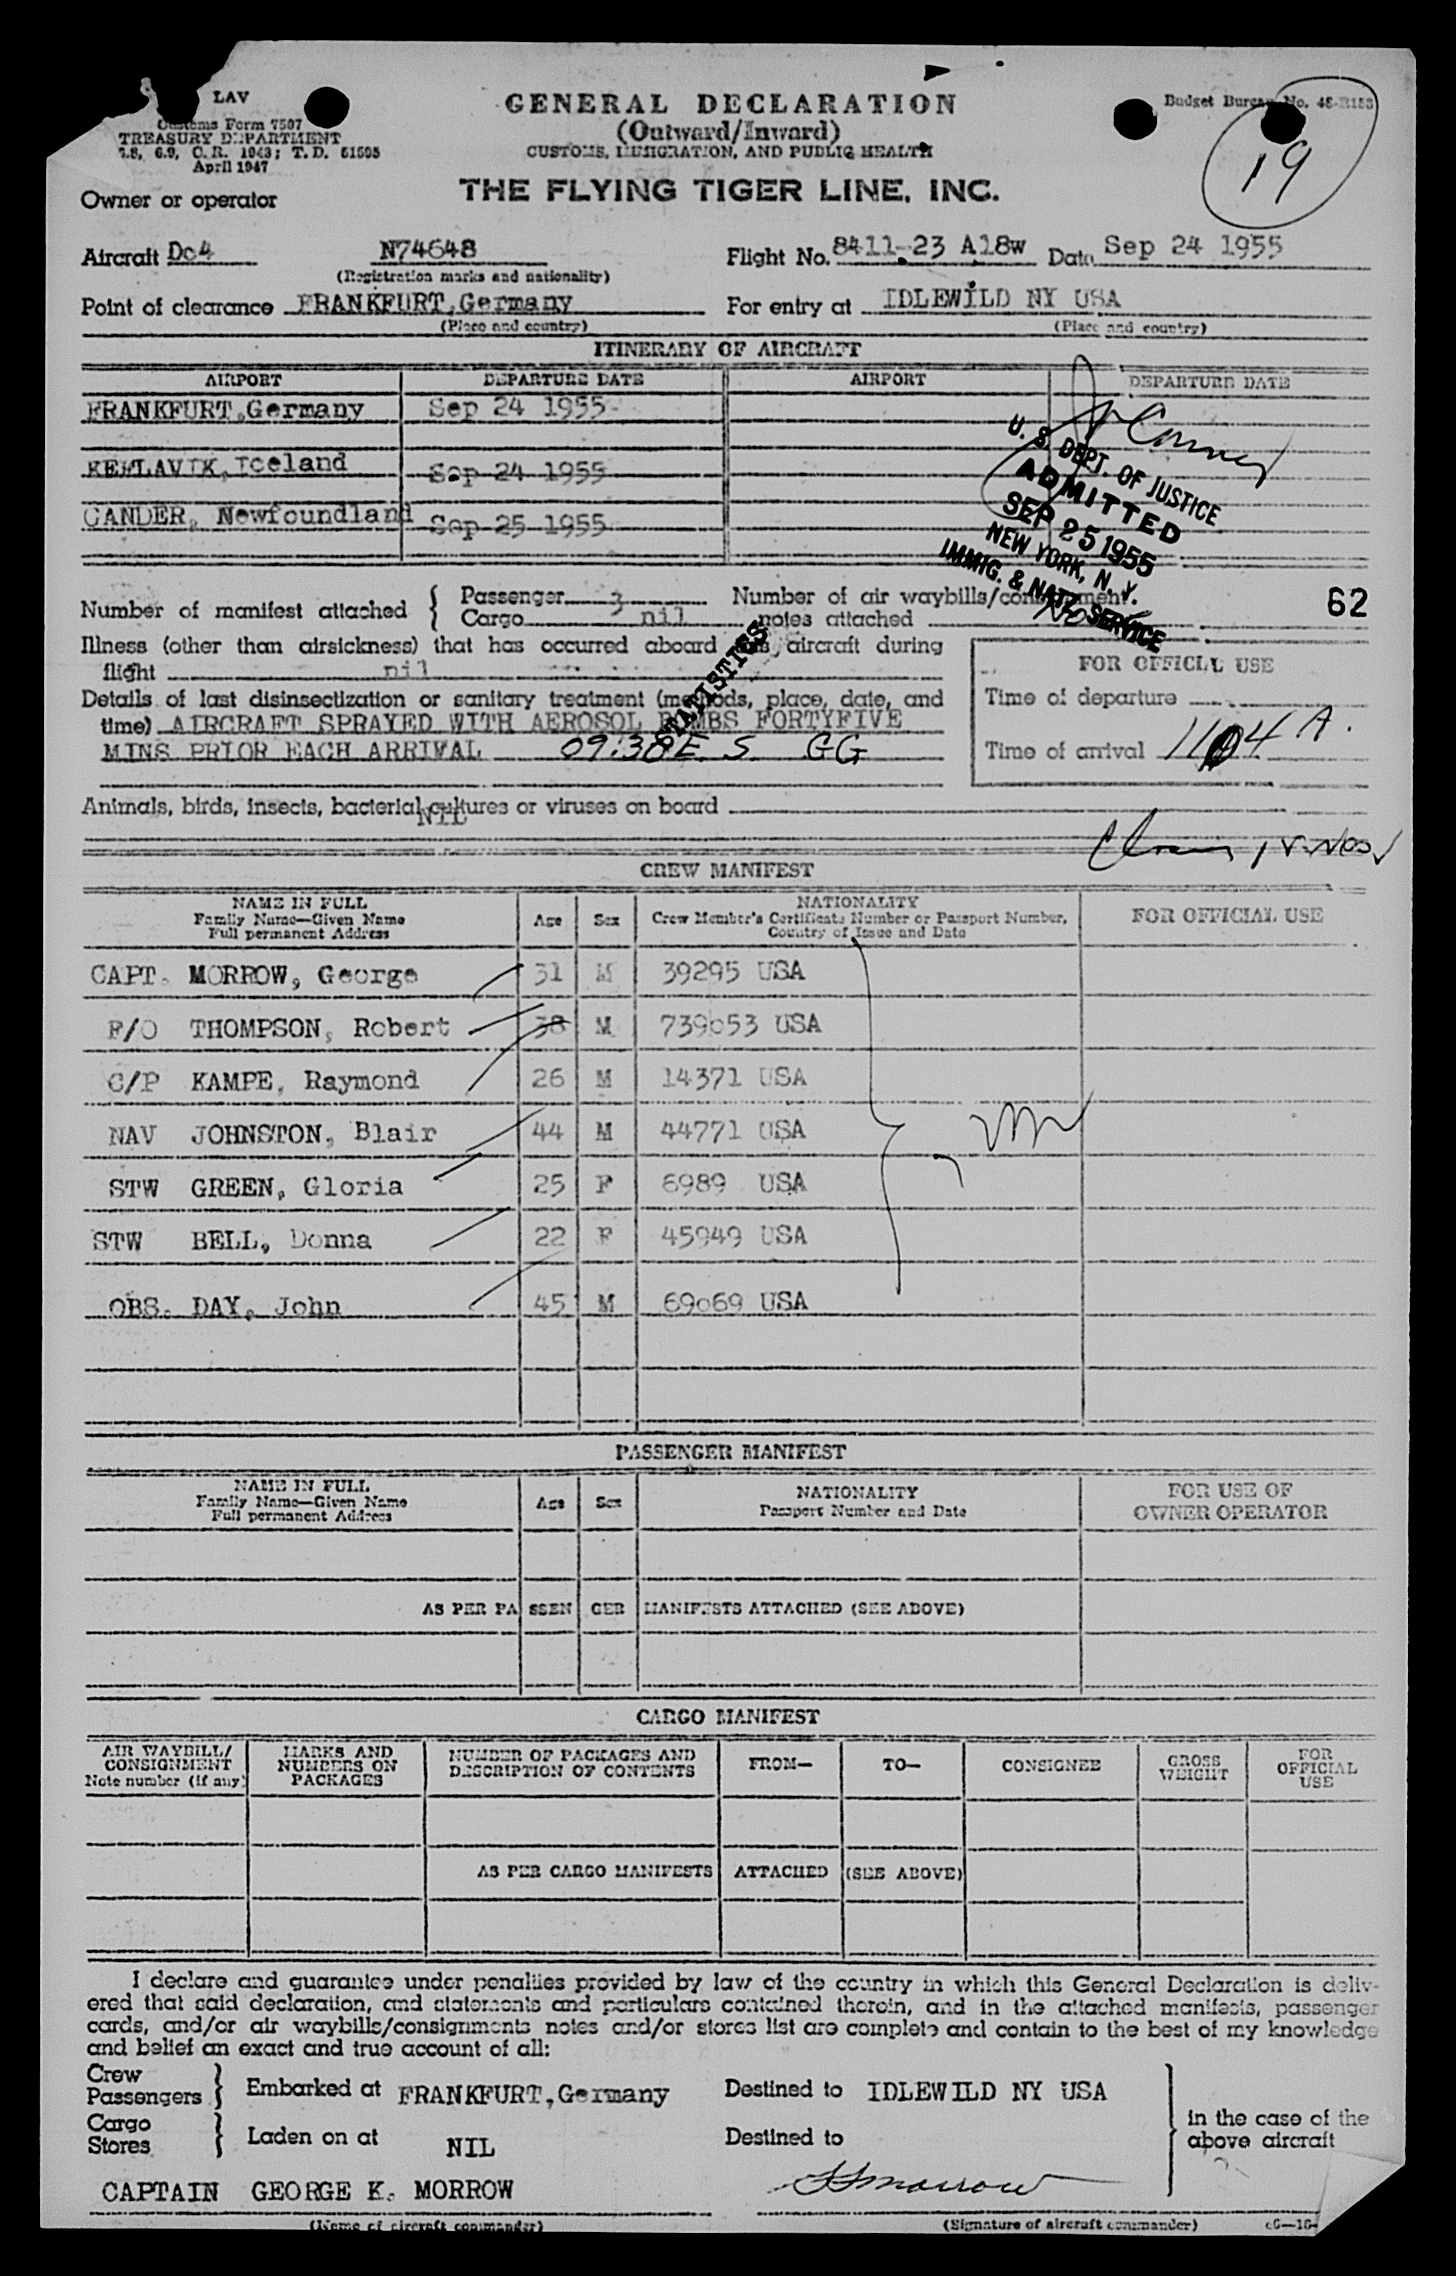 LAV
Customs Form 7507
TREASURY DEPARTMENT
7.8, 6.9, C.R. 1943; T.D. 51595
April 1947
GENERAL DECLARATION
(Outward/Inward)
CUSTOMS, IMMIGRATION, AND PUBLIC HEALTH
Budget Bureau No.
19
Owner or operator
THE FLYING TIGER LINE, INC.
Aircraft Dc4 N74648 Flight No. 8411-23 A18w Date Sep 24 1955
(Registration marks and nationality)
Point of clearance FRANKFURT,Germany For entry at IDLEWILD NY USA
(Place and country) (Place and country)
ITINERARY OF AIRCRAFT
AIRPORT DEPARTURE DATE AIRPORT DEPARTURE DATE
FRANKFURT,Germany Sep 24 1955
KEFLAVIK,Iceland Sep 24 1955
GANDER, Newfoundland Sep 25 1955
U. S. DEPT. OF JUSTICE
ADMITTED
SEP 25 1955
NEW YORK, N. Y.
IMMIG. & NATZ SERVICE
Number of manifest attached { Passenger 3 Number of air waybills/consignment
Cargo nil notes attached No
62
Illness (other than airsickness) that has occurred aboard this aircraft during
flight nil
STATISTICS
FOR OFFICIAL USE
Details of last disinsectization or sanitary treatment (methods, place, date, and
time) AIRCRAFT SPRAYED WITH AEROSOL BOMBS FORTYFIVE
MINS PRIOR EACH ARRIVAL 09:38 E. S. GG
Time of departure
Time of arrival 1104 A.
Animals, birds, insects, bacterial cultures or viruses on board
NIL
CREW MANIFEST
NAME IN FULL
Family Name—Given Name
Full permanent Address
Age Sex
NATIONALITY
Crew Member's Certificate Number or Passport Number,
Country of Issue and Date
FOR OFFICIAL USE
CAPT. MORROW, George 31 M 39295 USA
F/O THOMPSON, Robert 38 M 739053 USA
C/P KAMPE, Raymond 26 M 14371 USA
NAV JOHNSTON, Blair 44 M 44771 USA
STW GREEN, Gloria 25 F 6989 USA
STW BELL, Donna 22 F 45949 USA
OBS. DAY, John 45 M 69069 USA
PASSENGER MANIFEST
NAME IN FULL
Family Name—Given Name
Full permanent Address
Age Sex
NATIONALITY
Passport Number and Date
FOR USE OF
OWNER OPERATOR
AS PER PASSENGER MANIFESTS ATTACHED (SEE ABOVE)
CARGO MANIFEST
AIR WAYBILL/
CONSIGNMENT
Note number (if any)
MARKS AND
NUMBERS ON
PACKAGES
NUMBER OF PACKAGES AND
DESCRIPTION OF CONTENTS
FROM— TO— CONSIGNEE
GROSS
WEIGHT
FOR
OFFICIAL
USE
AS PER CARGO MANIFESTS ATTACHED (SEE ABOVE)
I declare and guarantee under penalties provided by law of the country in which this General Declaration is deliv-
ered that said declaration, and statements and particulars contained therein, and in the attached manifests, passenger
cards, and/or air waybills/consignments notes and/or stores list are complete and contain to the best of my knowledge
and belief an exact and true account of all:
Crew
Passengers } Embarked at FRANKFURT,Germany Destined to IDLEWILD NY USA
Cargo
Stores } Laden on at NIL Destined to
in the case of the
above aircraft
CAPTAIN GEORGE K. MORROW
(Name of aircraft commander) (Signature of aircraft commander)